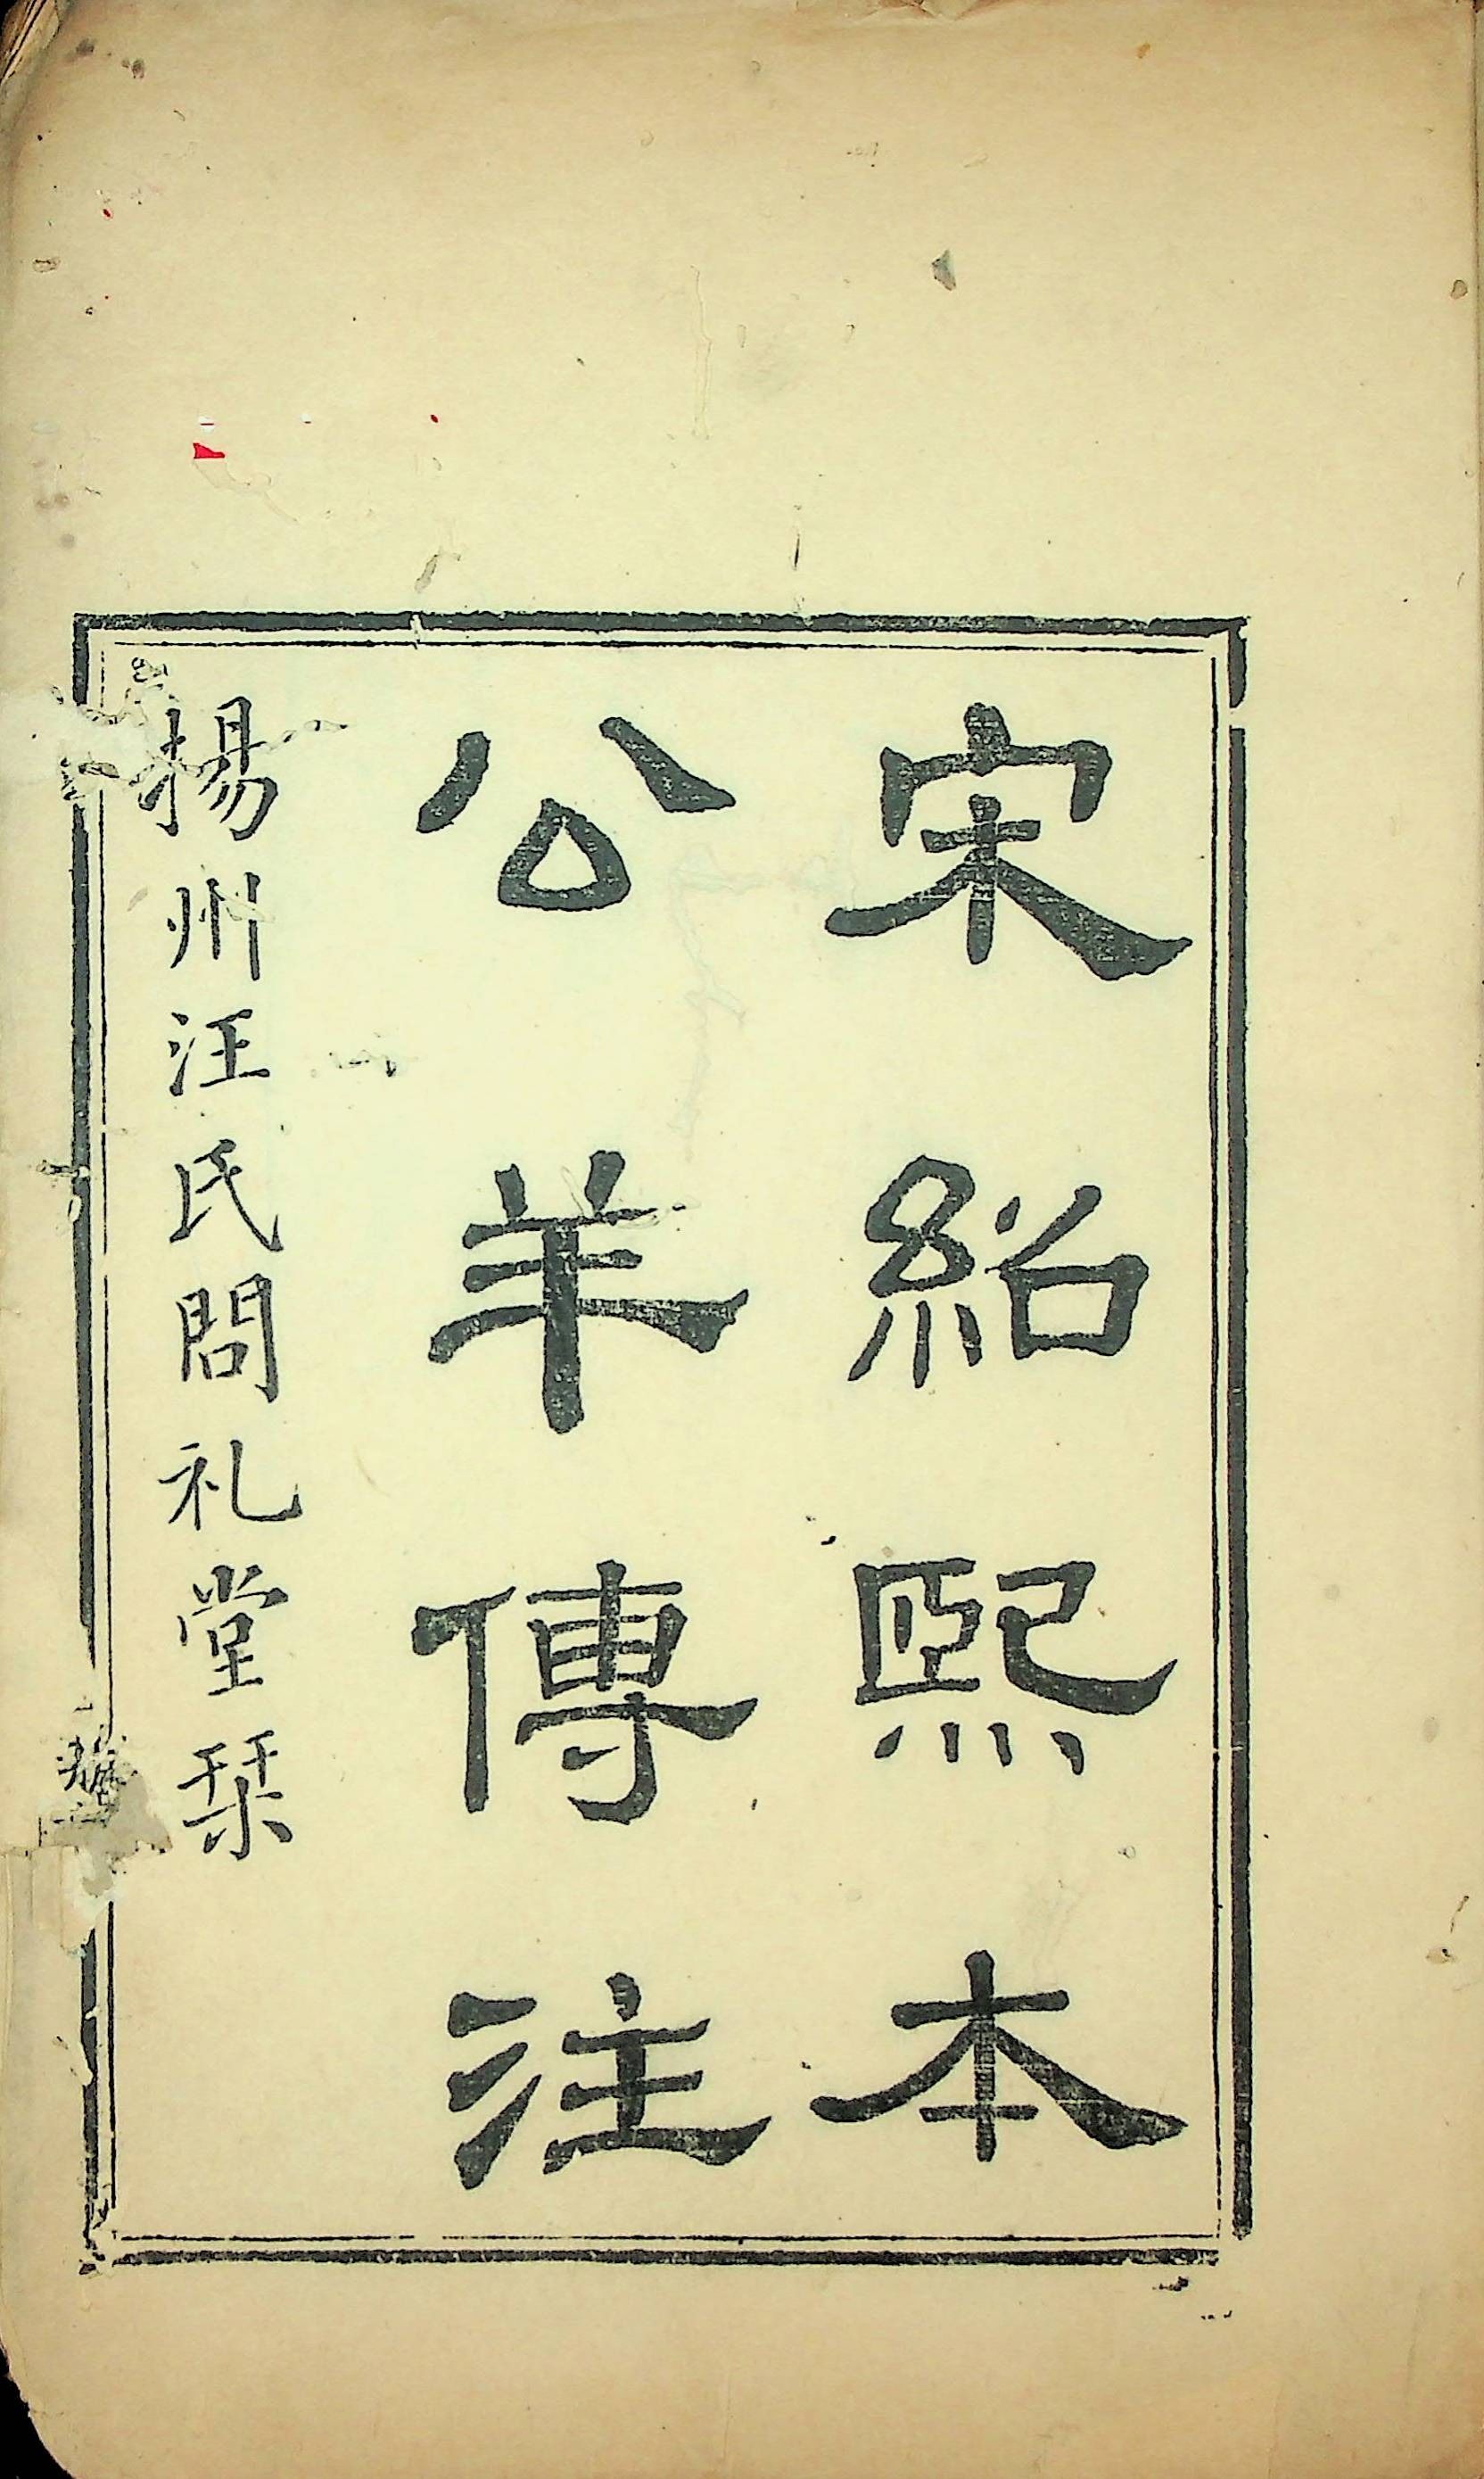 宋紹熙本
公羊傳注
揚州汪氏問礼堂栞